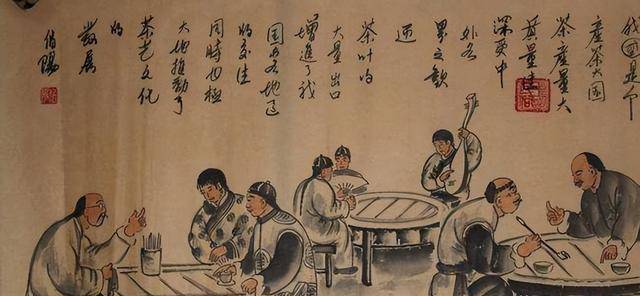 我国是个
產茶大国
茶產量大
質量佳
深受中
外各
界之歡
迎
茶叶的
大量出口
增進了我
国与各地區
的交往
同時也極
大地推動了
茶艺文化
的
發展